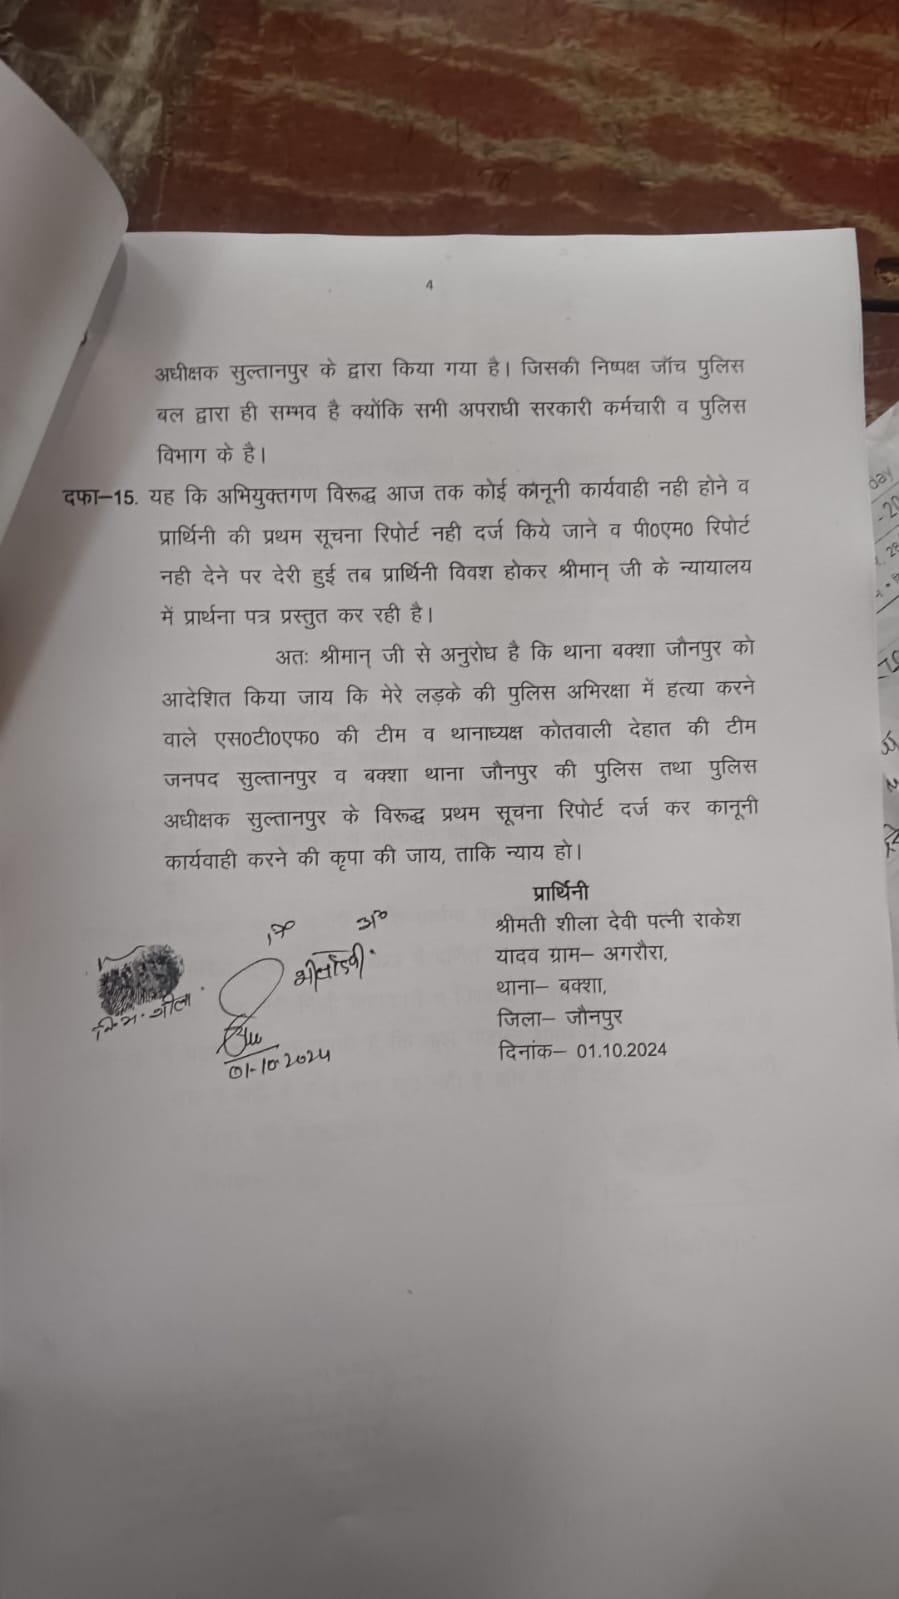 4
अधीक्षक सुल्तानपुर के द्वारा किया गया है। जिसकी निष्पक्ष जॉच पुलिस
बल द्वारा ही सम्भव है क्योंकि सभी अपराधी सरकारी कर्मचारी व पुलिस
विभाग के है।
दफा–15. यह कि अभियुक्तगण विरूद्ध आज तक कोई कानूनी कार्यवाही नही होने व
प्रार्थिनी की प्रथम सूचना रिपोर्ट नही दर्ज किये जाने व पी0एम0 रिपोर्ट
नही देने पर देरी हुई तब प्रार्थिनी विवश होकर श्रीमान् जी के न्यायालय
में प्रार्थना पत्र प्रस्तुत कर रही है।
अतः श्रीमान् जी से अनुरोध है कि थाना बक्शा जौनपुर को
आदेशित किया जाय कि मेरे लड़के की पुलिस अभिरक्षा में हत्या करने
वाले एस0टी0एफ0 की टीम व थानाध्यक्ष कोतवाली देहात की टीम
जनपद सुल्तानपुर व बक्शा थाना जौनपुर की पुलिस तथा पुलिस
अधीक्षक सुल्तानपुर के विरूद्ध प्रथम सूचना रिपोर्ट दर्ज कर कानूनी
कार्यवाही करने की कृपा की जाय, ताकि न्याय हो।
प्रार्थिनी
श्रीमती शीला देवी पत्नी राकेश
यादव ग्राम– अगरौरा,
थाना– बक्शा,
जिला– जौनपुर
दिनांक– 01.10.2024
नि.अ. शीला
01-10-2024
day